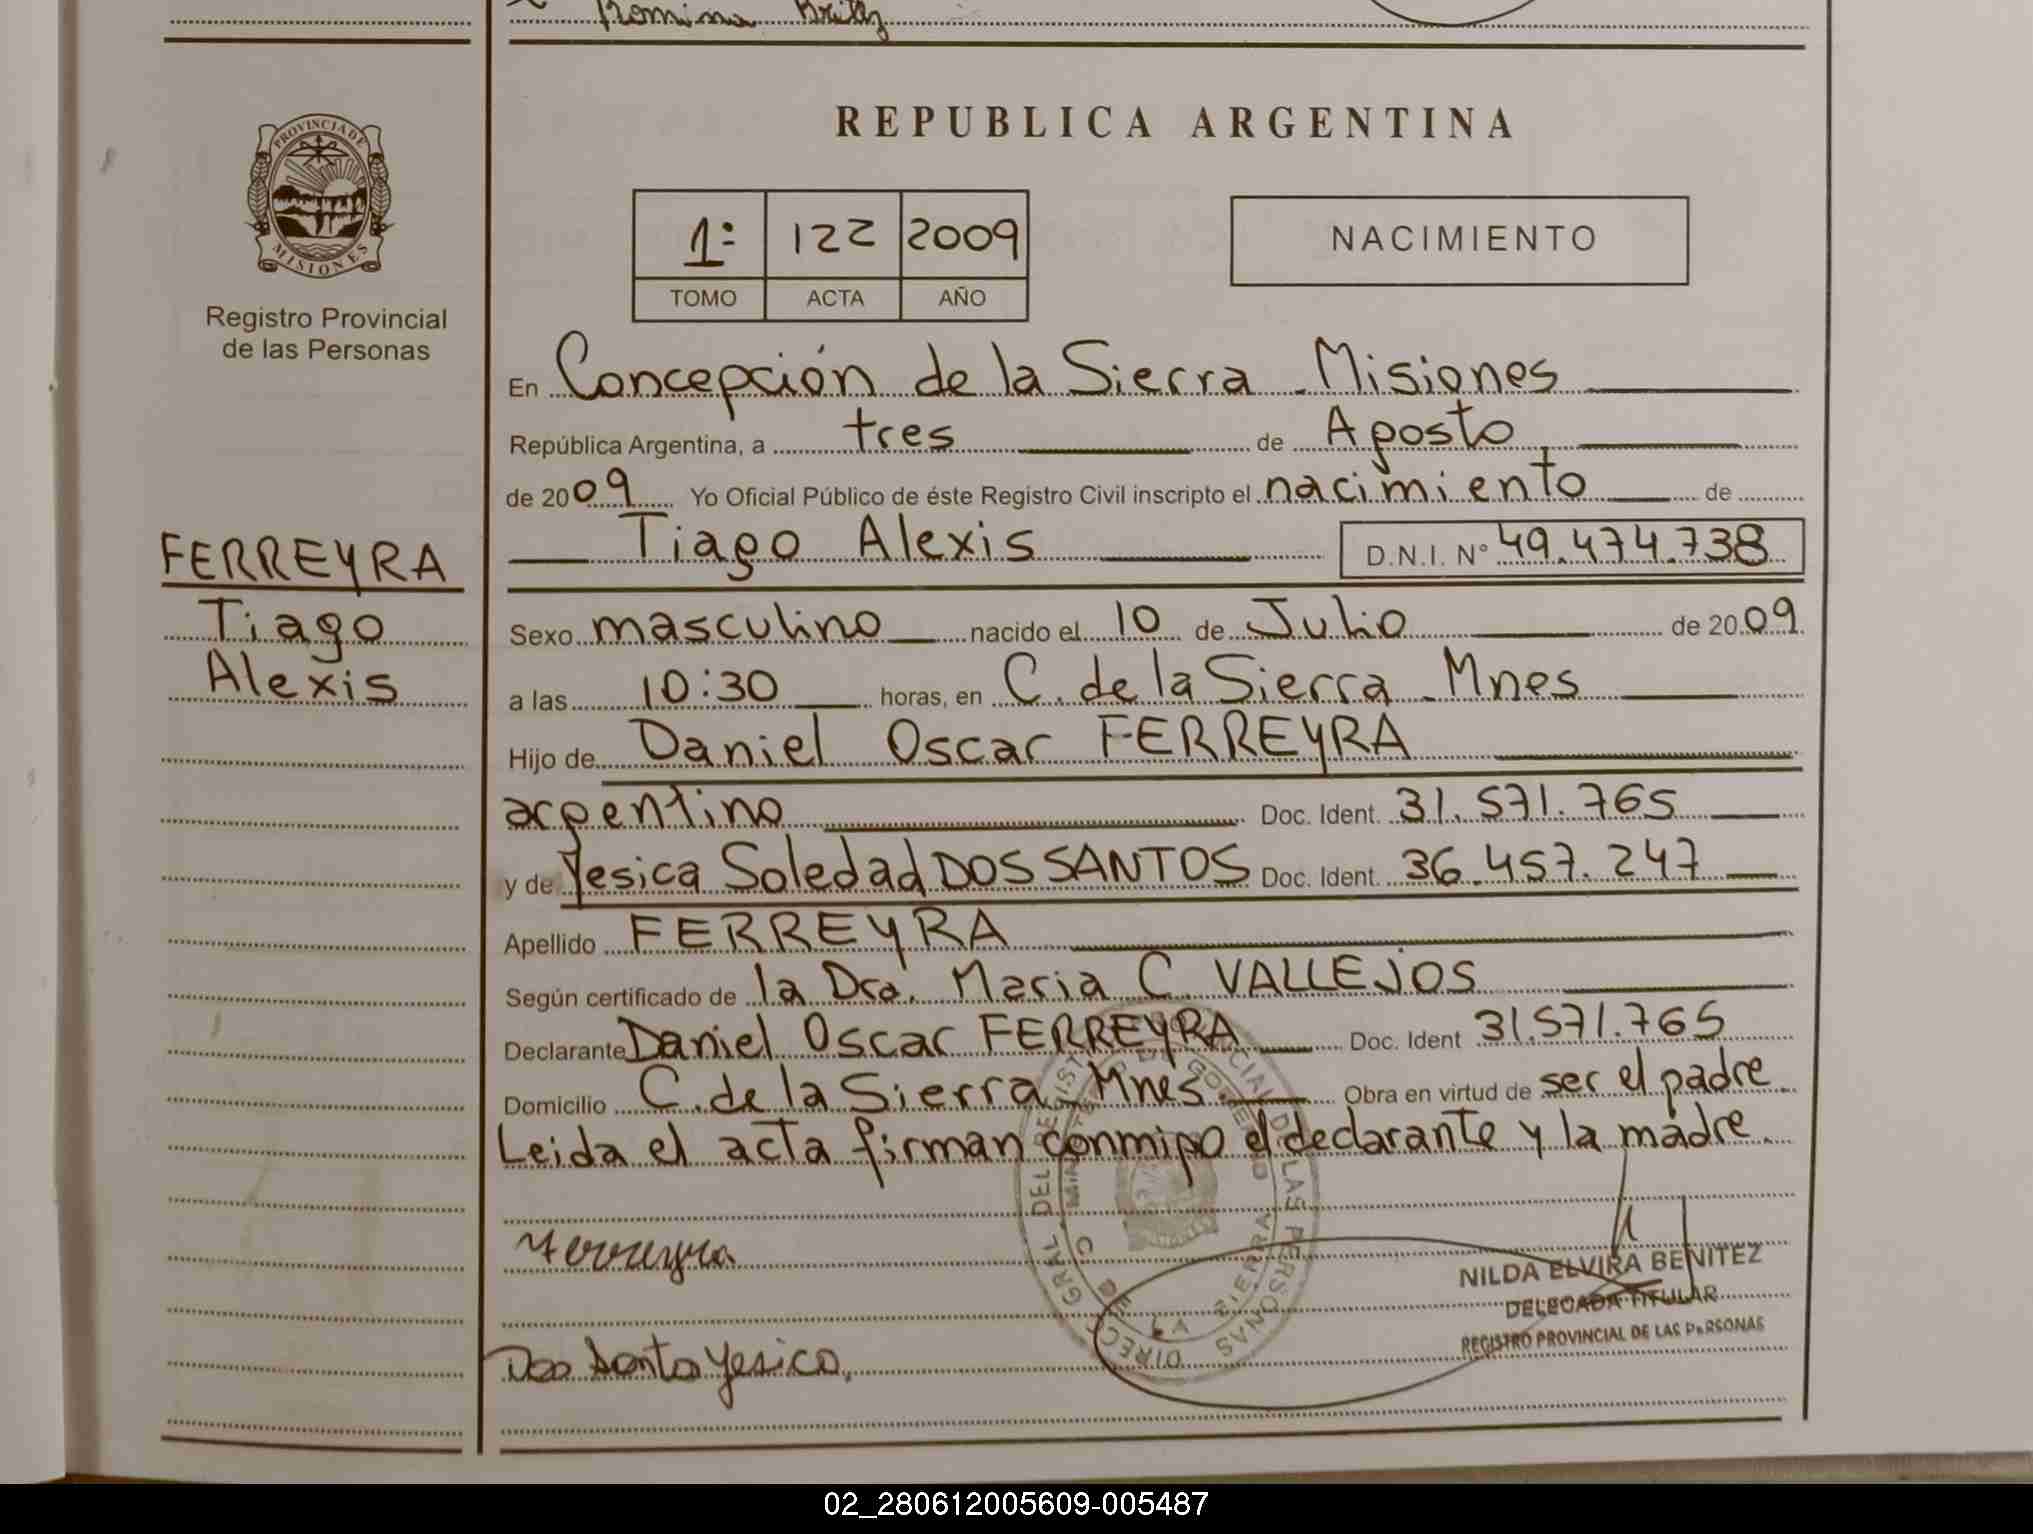 Romina Britez
PROVINCIA DE
MISIONES
Registro Provincial
de las Personas
FERREYRA
Tiago
Alexis
REPUBLICA ARGENTINA
1º 122 2009
TOMO ACTA AÑO
NACIMIENTO
En Concepción de la Sierra - Misiones
República Argentina, a tres de Agosto
de 2009 Yo Oficial Público de éste Registro Civil inscripto el nacimiento de
Tiago Alexis D.N.I. Nº 49.474.738
Sexo masculino nacido el 10 de Julio de 2009
a las 10:30 horas, en C. de la Sierra - Mnes
Hijo de Daniel Oscar FERREYRA
argentino Doc. Ident. 31.571.765
y de Yesica Soledad DOS SANTOS Doc. Ident. 36.457.247
Apellido FERREYRA
Según certificado de la Dra. Maria C. VALLEJOS
Declarante Daniel Oscar FERREYRA Doc. Ident 31.571.765
Domicilio C. de la Sierra, Mnes. Obra en virtud de ser el padre
Leida el acta firman conmigo el declarante y la madre.
Ferreyra
Dos Santo Yesica.
DIRECC GRAL. DEL REGIST CIAL DE LAS PERSONAS
C DE LA SIERRA
NILDA ELVIRA BENITEZ
DELEGADA TITULAR
REGISTRO PROVINCIAL DE LAS PERSONAS
02_280612005609-005487